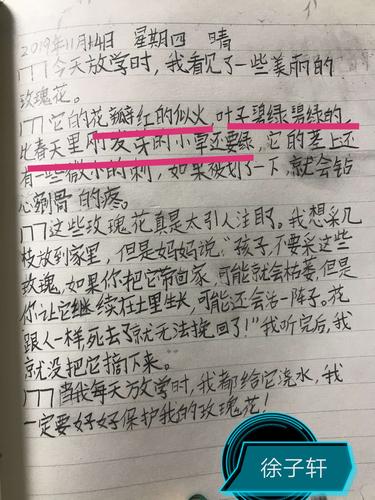 2019年11月14日 星期四 晴
今天放学时，我看见了一些美丽的
玫瑰花。
它的花瓣红的似火，叶子碧绿碧绿的，
比春天里刚发牙的小草还要绿，它的茎上还
有一些微小的刺，如果被划了一下，就会钻
心剐骨的疼。
这些玫瑰花真是太引人注目了。我想采几
枝放到家里，但是妈妈说："孩子，不要采这些
玫瑰，如果你把它带回家，可能就会枯萎，但是
你让它继续在土里生长，可能还会活一阵子。花
跟人一样死去了就无法挽回了！"我听完后，我
就没把它摘下来。
当我每天放学时，我都给它浇水，我
一定要好好保护我的玫瑰花！
徐子轩